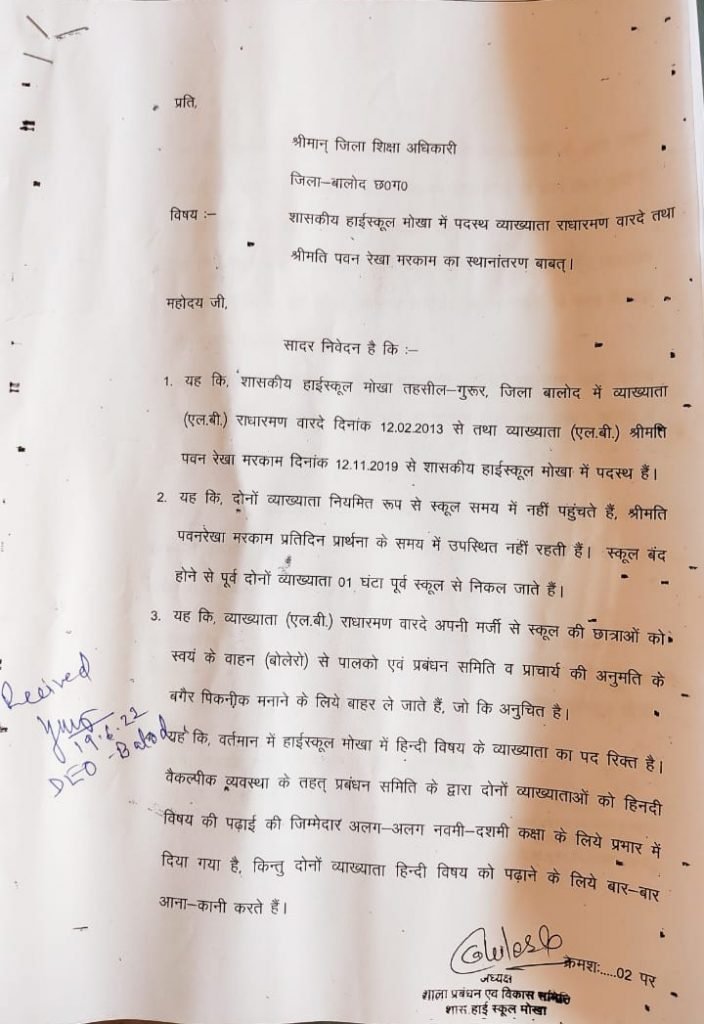 प्रति,
श्रीमान् जिला शिक्षा अधिकारी
जिला–बालोद छ0ग0
विषय :–
शासकीय हाईस्कूल मोखा में पदस्थ व्याख्याता राधारमण वारदे तथा
श्रीमति पवन रेखा मरकाम का स्थानांतरण बाबत्।
महोदय जी,
सादर निवेदन है कि :–
1. यह कि, शासकीय हाईस्कूल मोखा तहसील–गुरूर, जिला बालोद में व्याख्याता
(एल.बी.) राधारमण वारदे दिनांक 12.02.2013 से तथा व्याख्याता (एल.बी.) श्रीमति
पवन रेखा मरकाम दिनांक 12.11.2019 से शासकीय हाईस्कूल मोखा में पदस्थ हैं।
2. यह कि, दोनों व्याख्याता नियमित रूप से स्कूल समय में नहीं पहुंचते हैं, श्रीमति
पवनरेखा मरकाम प्रतिदिन प्रार्थना के समय में उपस्थित नहीं रहती हैं। स्कूल बंद
होने से पूर्व दोनों व्याख्याता 01 घंटा पूर्व स्कूल से निकल जाते हैं।
3. यह कि, व्याख्याता (एल.बी.) राधारमण वारदे अपनी मर्जी से स्कूल की छात्राओं को
स्वयं के वाहन (बोलेरो) से पालको एवं प्रबंधन समिति व प्राचार्य की अनुमति के
बगैर पिकनीक मनाने के लिये बाहर ले जाते हैं, जो कि अनुचित है।
यह कि, वर्तमान में हाईस्कूल मोखा में हिन्दी विषय के व्याख्याता का पद रिक्त है।
वैकल्पीक व्यवस्था के तहत् प्रबंधन समिति के द्वारा दोनों व्याख्याताओं को हिनदी
विषय की पढ़ाई की जिम्मेदार अलग–अलग नवमी–दशमी कक्षा के लिये प्रभार में
दिया गया है, किन्तु दोनों व्याख्याता हिन्दी विषय को पढ़ाने के लिये बार–बार
आना–कानी करते हैं।
Received
19.6.22
DEO -Balod
क्रमशः.....02 पर
अध्यक्ष
शाला प्रबंधन एवं विकास समिति
शास.हाई स्कूल मोखा